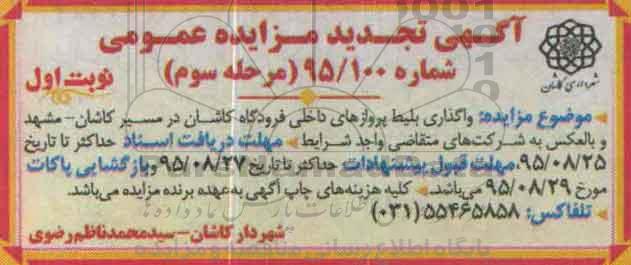 آگهی تجدید مزایده عمومی
شماره ۹۵/۱۰۰ (مرحله سوم)
نوبت اول
شهرداری کاشان
موضوع مزایده: واگذاری بلیط پروازهای داخلی فرودگاه کاشان در مسیر کاشان- مشهد
و بالعکس به شرکت‌های متقاضی واجد شرایط مهلت دریافت اسناد حداکثر تا تاریخ
۹۵/۰۸/۲۵، مهلت قبول پیشنهادات حداکثر تا تاریخ ۹۵/۰۸/۲۷ و بازگشایی پاکات
مورخ ۹۵/۰۸/۲۹ می‌باشد. کلیه هزینه‌های چاپ آگهی به‌عهده برنده مزایده می‌باشد.
تلفاکس: ۵۵۴۶۵۸۵۸ (۰۳۱)
شهردار کاشان – سیدمحمدناظم‌رضوی
پایگاه اطلاع رسانی مناقصه و مزایده